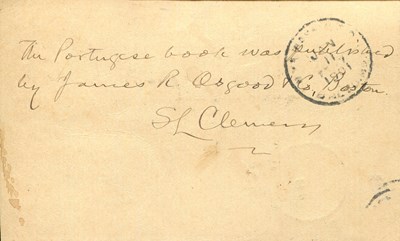 The Portugese book was published
by James R Osgood & Co Boston.
SL Clemens
JAN
11
1881